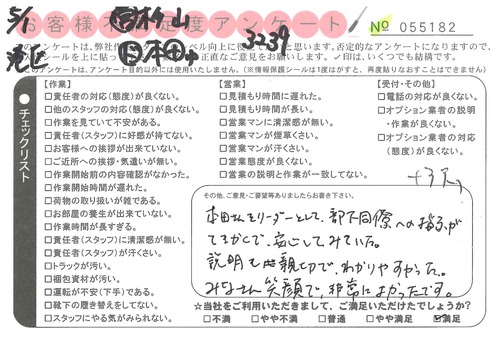 5/1
お客様不満足度アンケート
3239
№ 055182
港区
本アンケートは、弊社
正直なご意見をお願いします。否定的なアンケートになりますので、
いくつでも結構です。
アンケートは、アンケート目的以外には使用いたしません。(※情報保護シールは1度はがすと、再度貼りなおすことはできません)
チェックリスト
【作業】
□責任者の対応(態度)が良くない。
□他のスタッフの対応(態度)が良くない。
□作業を見ていて不安がある。
□責任者(スタッフ)に好感が持てない。
□お客様への挨拶が出来ていない。
□ご近所への挨拶・気遣いが無い。
□作業開始前の内容確認がなかった。
□作業開始時間が遅れた。
□荷物の取り扱いが雑である。
□お部屋の養生が出来ていない。
□作業時間が長すぎる。
□責任者(スタッフ)に清潔感が無い。
□責任者(スタッフ)が汗くさい。
□トラックが汚い。
□梱包資材が汚い。
□運転が不安(下手)である。
□靴下の履き替えをしてない。
□スタッフにやる気がみられない。
【営業】
□見積もり時間に遅れた。
□見積もり時間が長い。
□営業マンに清潔感が無い。
□営業マンが煙草くさい。
□営業マンが汗くさい。
□営業態度が良くない。
□営業の説明と作業が一致してない。
【受付・その他】
□電話の対応が良くない。
□オプション業者の説明
・作業が良くない。
□オプション業者の対応
(態度)が良くない。
その他、ご意見・ご要望等ありましたらお書き下さい。
本田さんをリーダーとして、部下同僚への指示が
てきかくで、安心してみていた。
説明も親切で、わかりやすかった。
みなさん笑顔で、非常によかったです。
☆当社をご利用いただきまして、ご満足いただけたでしょうか?
□不満 □やや不満 □普通 □やや満足 ☑満足